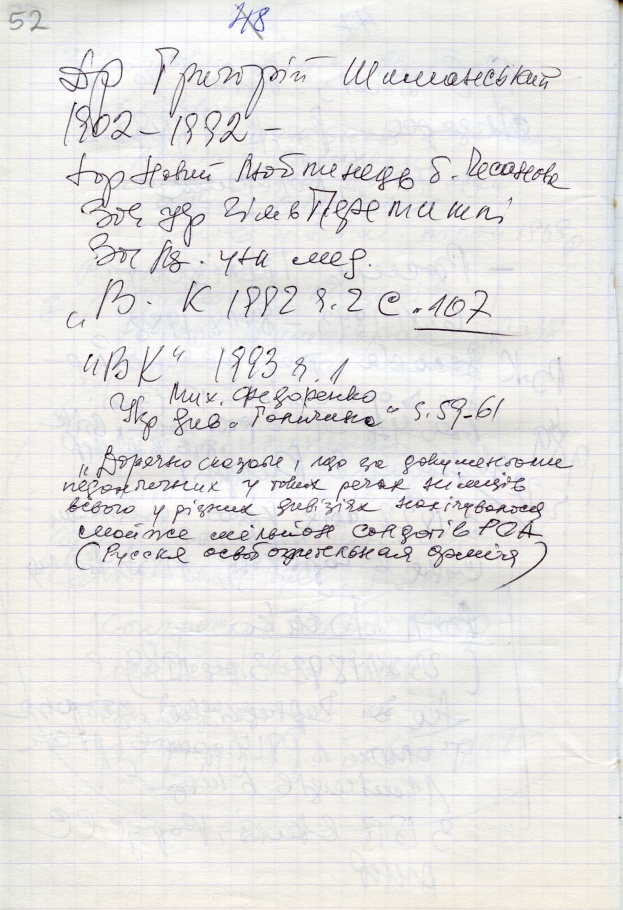 52 48
Др Григорій Шиманський
1902–1992 –
Новий Любтинець б.
Зак укр гімн Перемишлі
мед.
„В. К 1992 ч. 2 с. 107
„ВК“ 1993 ч. 1
Мих. Федоренко
Укр див „Галичина“ s. 59-61
„Доречно сказати, що за документами
педантичних у таких речах німців
всього у різних дивізіях налічувалося
майже мільйон солдатів РОА
(Русская освободительная армия)